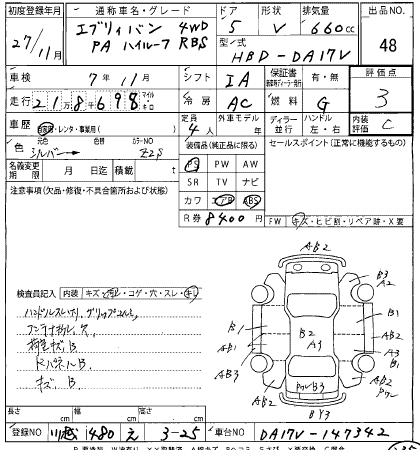 初度登録年月 通称車名・グレード ドア 形状 排気量 出品No.
27/11月 エブリイバン 4WD 5 V 660cc 48
PA ハイルーフ RBS 型式 HBD-DA17V
車検 7年11月 シフト IA 保証書 有・無 評価点
走行 218698 マイル キロ 冷房 AC 燃料 G 3
車歴 自家用・レンタ・事業用( ) 定員 4人 外車モデル 年 ディーラー 並行 ハンドル 左・右 内装評価 C
色 元色 シルバー→ 色替 カラーNO Z2S 装備品(純正品に限る) セールスポイント(正常に機能するもの)
名義変更期限 月 日迄 積載 t PS PW AW
注意事項(欠品・修復・不具合箇所および状態) SR TV ナビ
カワ エアB ABS
R券 8400円 FW キズ・ヒビ割・リペア跡・X要
検査員記入 内装 キズ・汚レ・コゲ・穴・スレ・キレ
AB2
B3
A2
B1
B1
B2
A3
AB1
A3
B1
AB3
AB2
B3
BY3
キズB
長さ cm 幅 cm 高さ cm
登録NO 川越 480 え 3-25 車台NO DA17V-147342